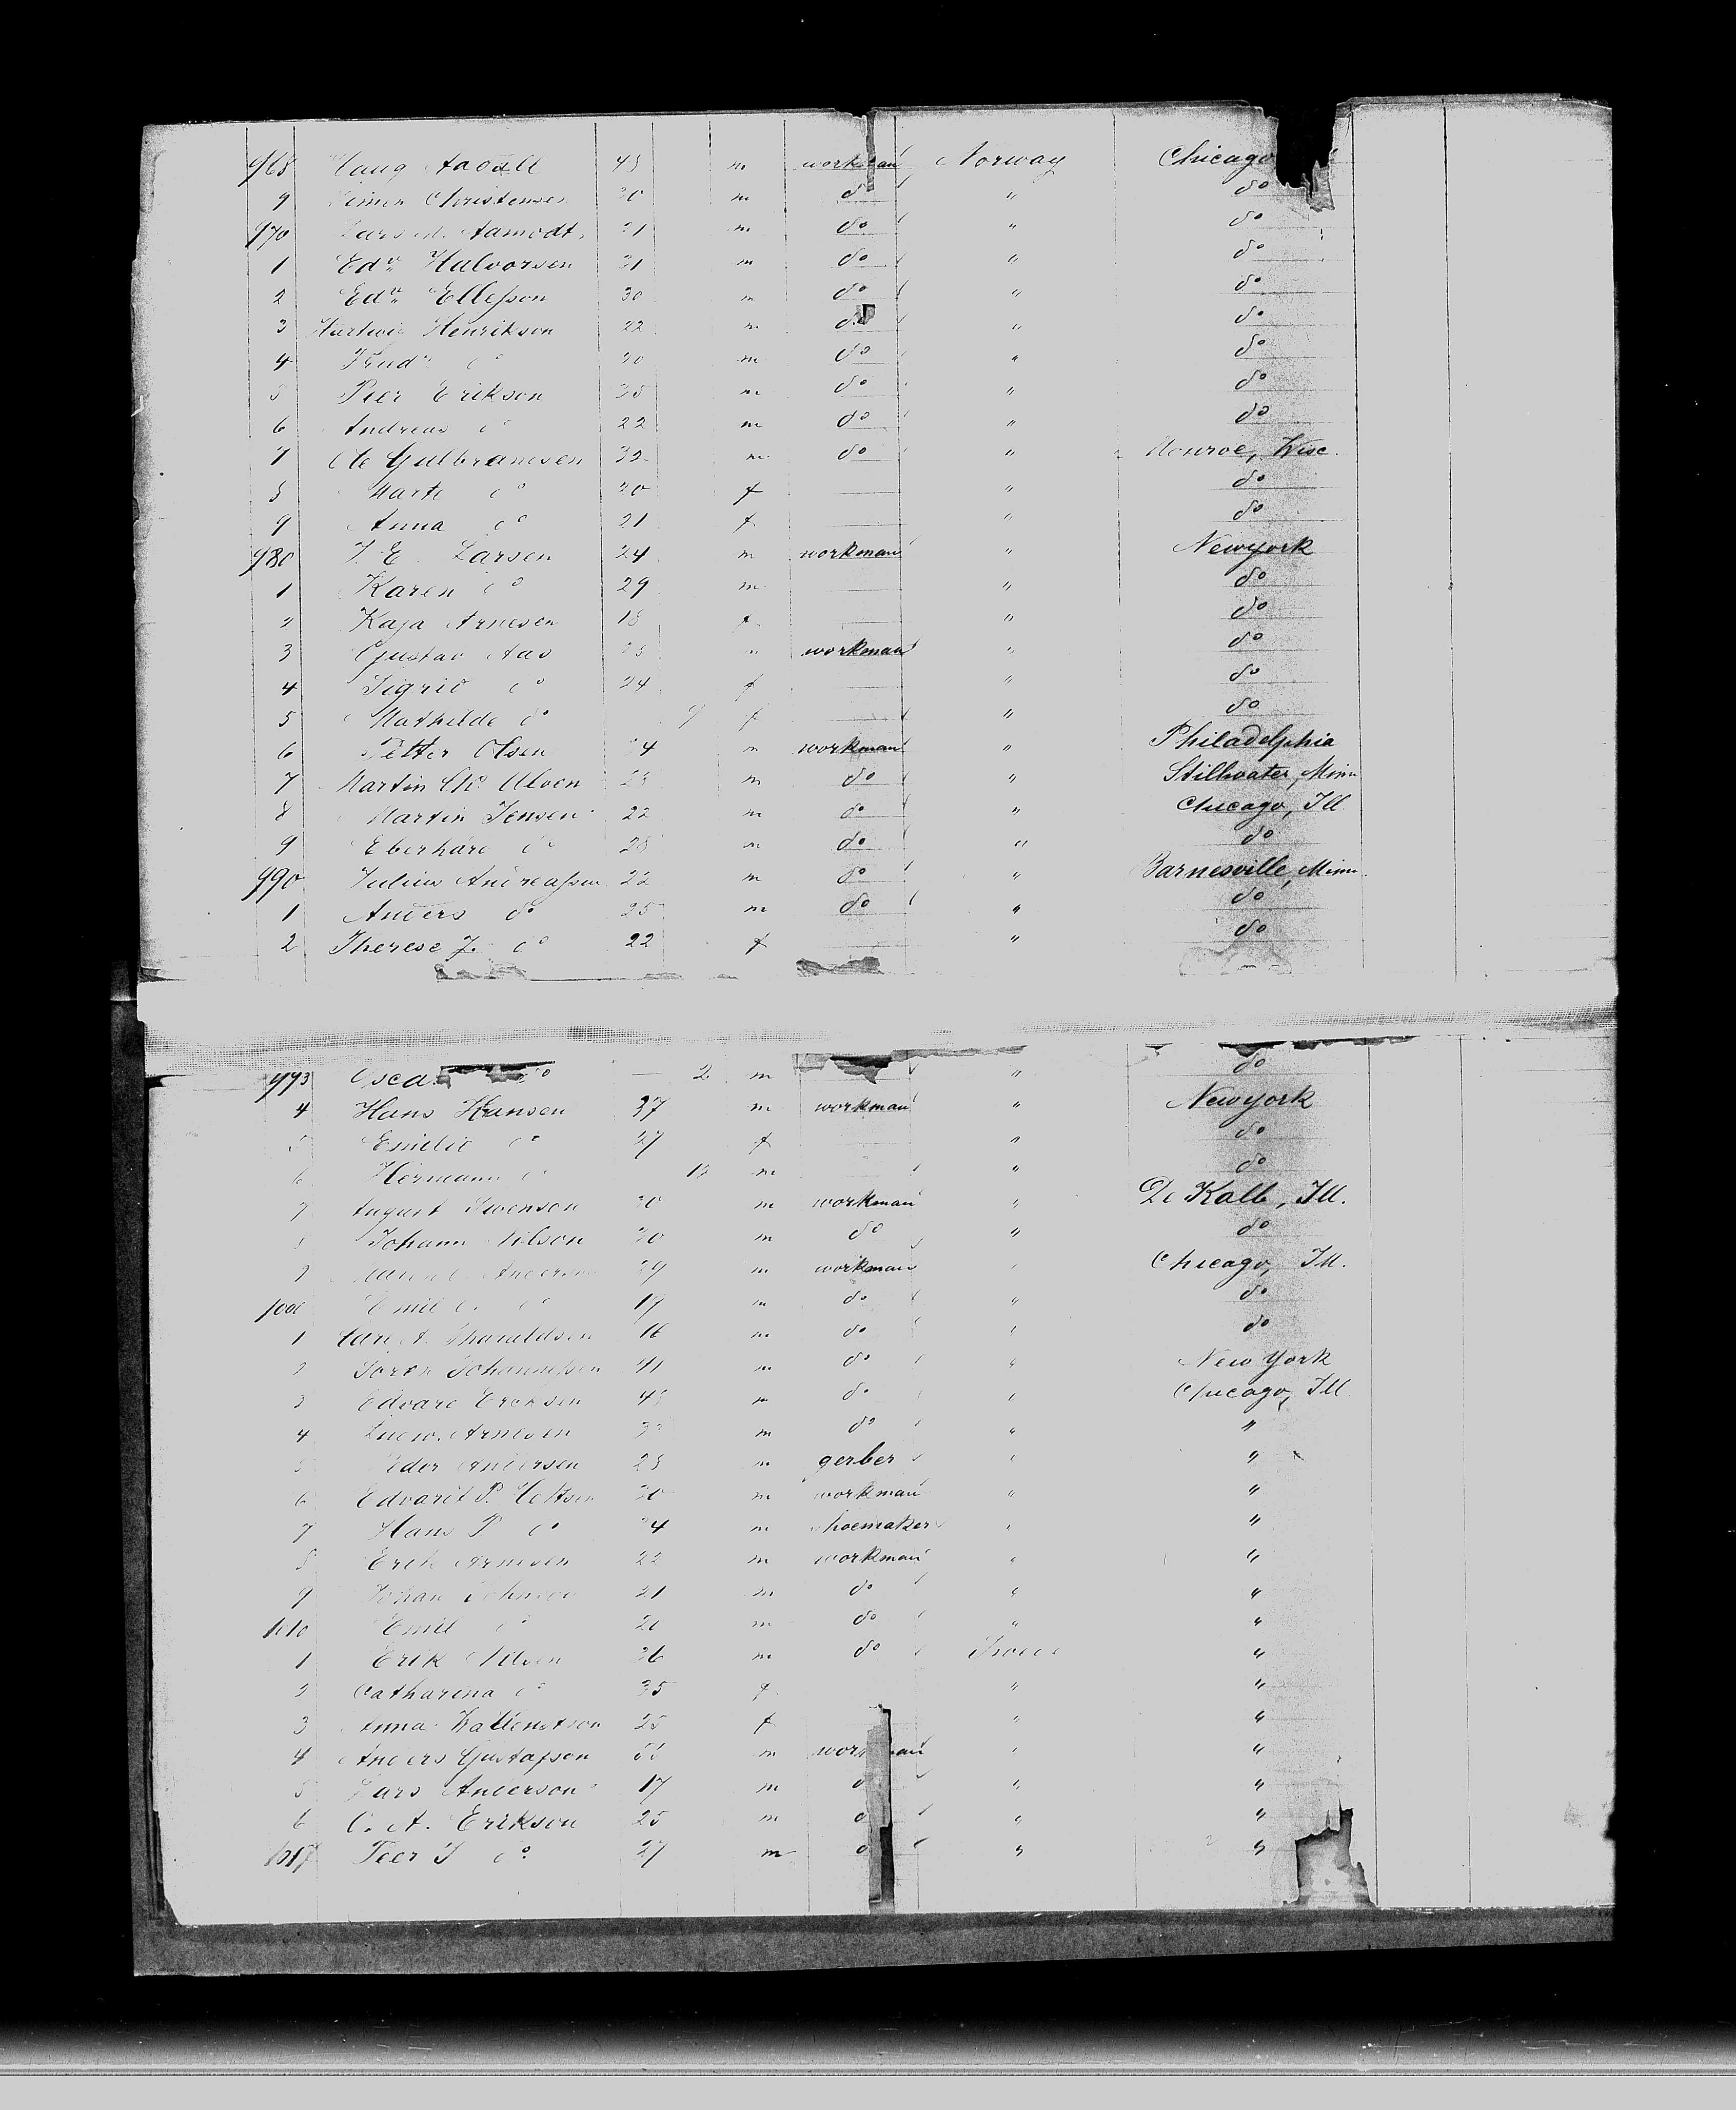 968 Haug Aadall 45 m workman Norway Chicago
9 Simen Christensen 30 m do " do
970 Lars M. Aamodt 21 m do " do
1 Edv. Halvorsen 31 m do " do
2 Edv. Ellefson 30 m do " do
3 Hartwig Henrikson 22 m do " do
4 Fred. do 20 m do " do
5 Peer Erikson 35 m do " do
6 Andreas do 22 m do " do
7 Ole Gulbrandsen 32 m do " Monroe, Wisc.
8 Marte do 20 f " do
9 Anna do 21 f " do
980 J. E. Larsen 24 m workman " Newyork
1 Karen do 29 m " do
2 Kaja Arnesen 18 f " do
3 Gustav Aas m workman " do
4 Sigrid do 24 f " do
5 Mathilde do 9 f " do
6 Petter Olsen m workman " Philadelphia
7 Martin Chr. Ulven m do " Stillwater, Minn
8 Martin Jensen 22 m do " Chicago, Ill.
9 Eberhard do 28 m do " do
990 Julius Andreassen 22 m do " Barnesville, Minn.
1 Anders do 25 m do " do
2 Therese J. do 22 f " do
993 Osca do 2 m " do
4 Hans Hansen 37 m workman " Newyork
5 Emilie do 27 f " do
6 Hermann do m " do
7 August Swenson 30 m workman " De Kalb, Ill.
8 Johann Nilson 30 m do " do
9 Anderson 29 m workman " Chicago, Ill.
1000 Emil do 19 m do " do
1 Carl A. Tharaldsen 16 m do " do
2 Soren Johannessen 41 m do " New York
3 Edvard Eriksen m do " Chicago, Ill
4 Ludw. Arnesen m do " "
5 Peder Andersen m gerber " "
6 Edvard P. m workman " "
7 Hans P. do m shoemaker " "
8 Erik Arnesen 22 m workman " "
9 Johan 21 m do " "
1010 Emil do m do " "
1 Erik Nilson 36 m do Swede "
2 Catharina do 35 f " "
3 Anna Wallenstrom 25 f " "
4 Anders Gustafson m workman " "
5 Lars Anderson 17 m d " "
6 C. A. Erikson 25 m d " "
1017 Peer J do 27 m d " "